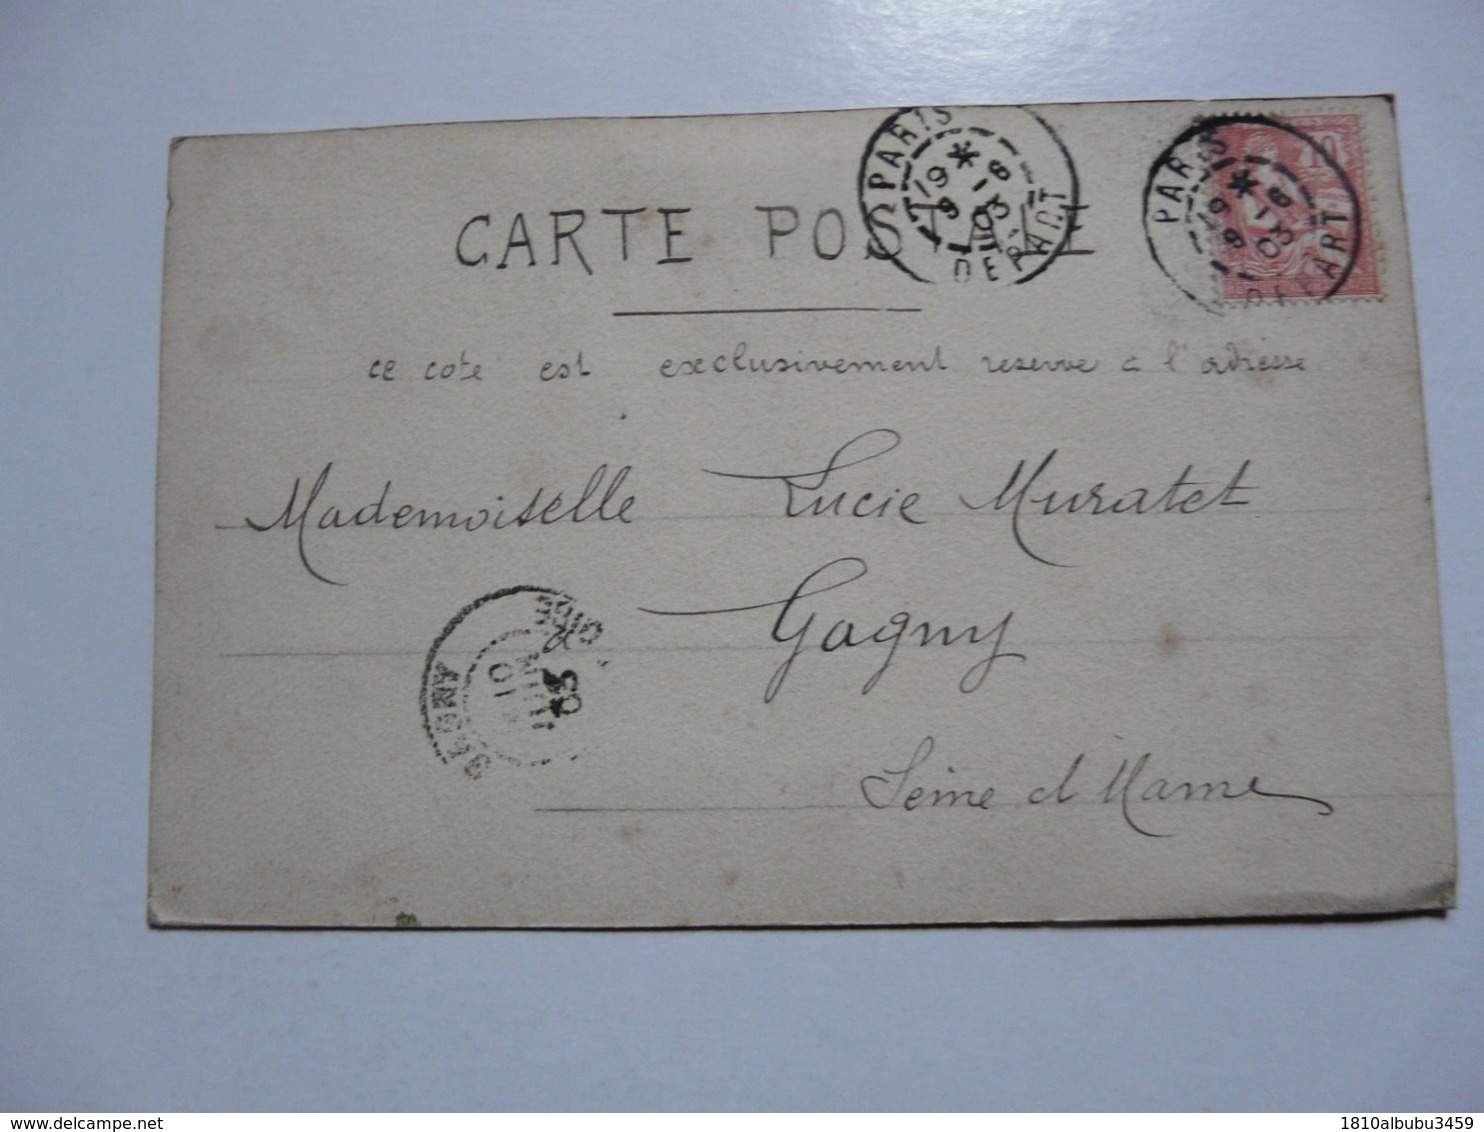 PARIS
19 * 9 -6 03
DEPART
PARIS
19 * 9 -6 03
DEPART
10
CARTE POSTALE
ce cote est exclusivement reserve a l'adresse
Mademoiselle Lucie Muratet
Gagny
Seine et Marne
10
JUIN
03
delcampe.net
1810albubu3459